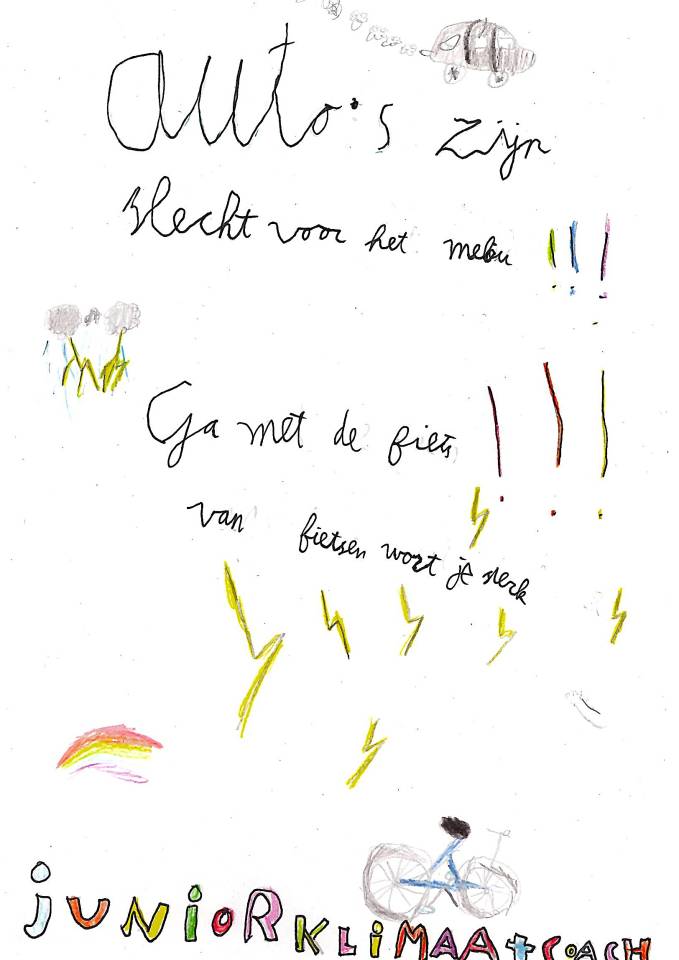 auto's zijn
slecht voor het meliu !!!
Ga met de fiets !!!
van fietsen wort je sterk
JUNIOR KLIMAAtCOACH